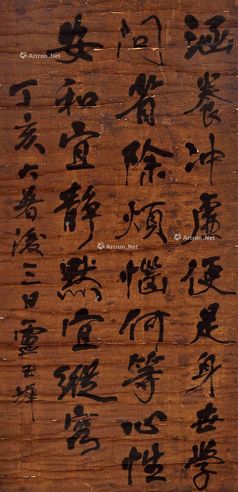 涵養冲虛便是身世學
問省除煩惱何等心性
安和宜靜默宜縱容
丁亥大暑後三日靈玉墀
Artron.Net
Artron.Net
Artron.Net